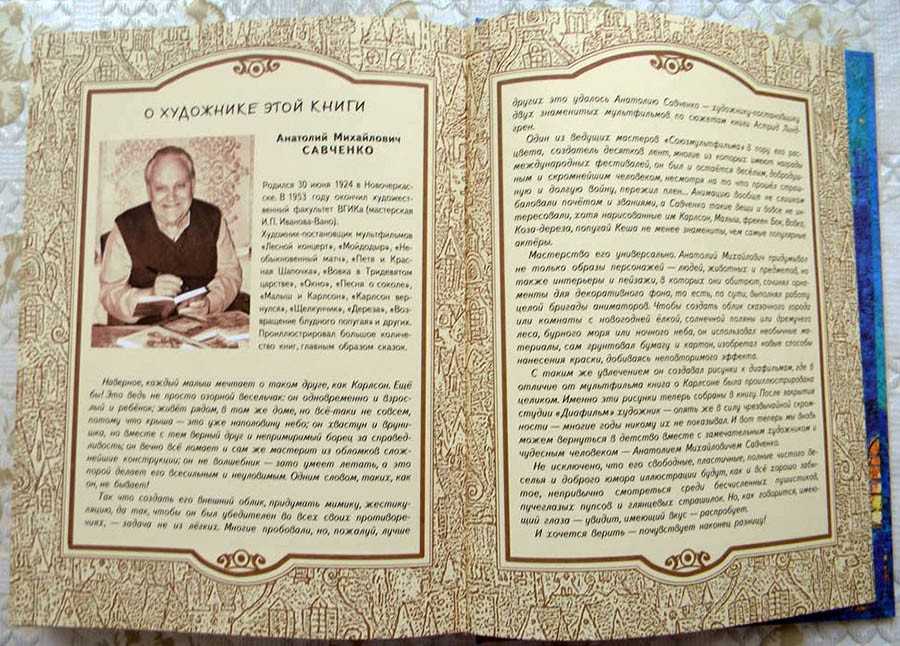 О ХУДОЖНИКЕ ЭТОЙ КНИГИ
Анатолий Михайлович
САВЧЕНКО
Родился 30 июня 1924 в Новочеркас-
ске. В 1953 году окончил художест-
венный факультет ВГИКа (мастерская
И.П. Иванова-Вано).
Художник-постановщик мультфильмов
«Лесной концерт», «Мойдодыр», «Не-
обыкновенный матч», «Петя и Крас-
ная Шапочка», «Вовка в Тридевятом
царстве», «Окно», «Песня о соколе»,
«Малыш и Карлсон», «Карлсон вер-
нулся», «Щелкунчик», «Дереза», «Воз-
вращение блудного попугая» и других.
Проиллюстрировал большое количе-
ство книг, главным образом сказок.
Наверное, каждый малыш мечтает о таком друге, как Карлсон. Ещё
бы! Это ведь не просто озорной весельчак: он одновременно и взрос-
лый и ребёнок; живёт рядом, в том же доме, но всё-таки не совсем,
потому что крыша — это уже наполовину небо; он хвастун и вруни-
шка, но вместе с тем верный друг и непримиримый борец за справед-
ливость; он вечно всё ломает и сам же мастерит из обломков слож-
нейшие конструкции; он не волшебник — зато умеет летать, а это
порой делает его всесильным и неуловимым. Одним словом, таких, как
он, не бывает!
Так что создать его внешний облик, придумать мимику, жестику-
ляцию, да так, чтобы он был убедителен во всех своих противоре-
чиях, — задача не из лёгких. Многие пробовали, но, пожалуй, лучше
других это удалось Анатолию Савченко — художнику-постановщику
двух знаменитых мультфильмов по сюжетам книги Астрид Линд-
грен.
Один из ведущих мастеров «Союзмультфильма» в пору его рас-
цвета, создатель десятков лент, многие из которых имеют награды
международных фестивалей, он был и остаётся весёлым, добродуш-
ным и скромнейшим человеком, несмотря на то что прошёл страш-
ную и долгую войну, пережил плен... Анимацию вообще не слишком
баловали почётом и званиями, а Савченко такие вещи и вовсе не ин-
тересовали, хотя нарисованные им Карлсон, Малыш, фрекен Бок, Вовка,
Коза-дереза, попугай Кеша не менее знамениты, чем самые популярные
актёры.
Мастерство его универсально. Анатолий Михайлович придумывал
не только образы персонажей — людей, животных и предметов, но
также интерьеры и пейзажи, в которых они обитают, сочинял орна-
менты для декоративного фона, то есть, по сути, выполнял работу
целой бригады аниматоров. Чтобы создать облик сказочного города
или комнаты с новогодней ёлкой, солнечной поляны или дремучего
леса, бурного моря или ночного неба, он использовал необычные ма-
териалы, сам грунтовал бумагу и картон, изобретал новые способы
нанесения краски, добиваясь неповторимого эффекта.
С таким же увлечением он создавал рисунки к диафильмам, где в
отличие от мультфильма книга о Карлсоне была проиллюстрирована
целиком. Именно эти рисунки теперь собраны в книгу. После закрытия
студии «Диафильм» художник — опять же в силу чрезвычайной скром-
ности — многие годы никому их не показывал. И вот теперь мы вновь
можем вернуться в детство вместе с замечательным художником и
чудесным человеком — Анатолием Михайловичем Савченко.
Не исключено, что его свободные, пластичные, полные чистого ве-
селья и доброго юмора иллюстрации будут, как и всё хорошо забы-
тое, непривычно смотреться среди бесчисленных пушистиков,
пучеглазых пупсов и глянцевых страшилок. Но, как говорится, имею-
щий глаза — увидит, имеющий вкус — распробует.
И хочется верить — почувствует наконец разницу!